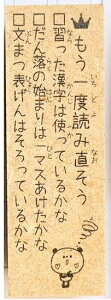 もう一度読み直そう
□習った漢字は使っているかな
□だん落の始まりは一マスあけたかな
□文まつ表げんはそろっているかな